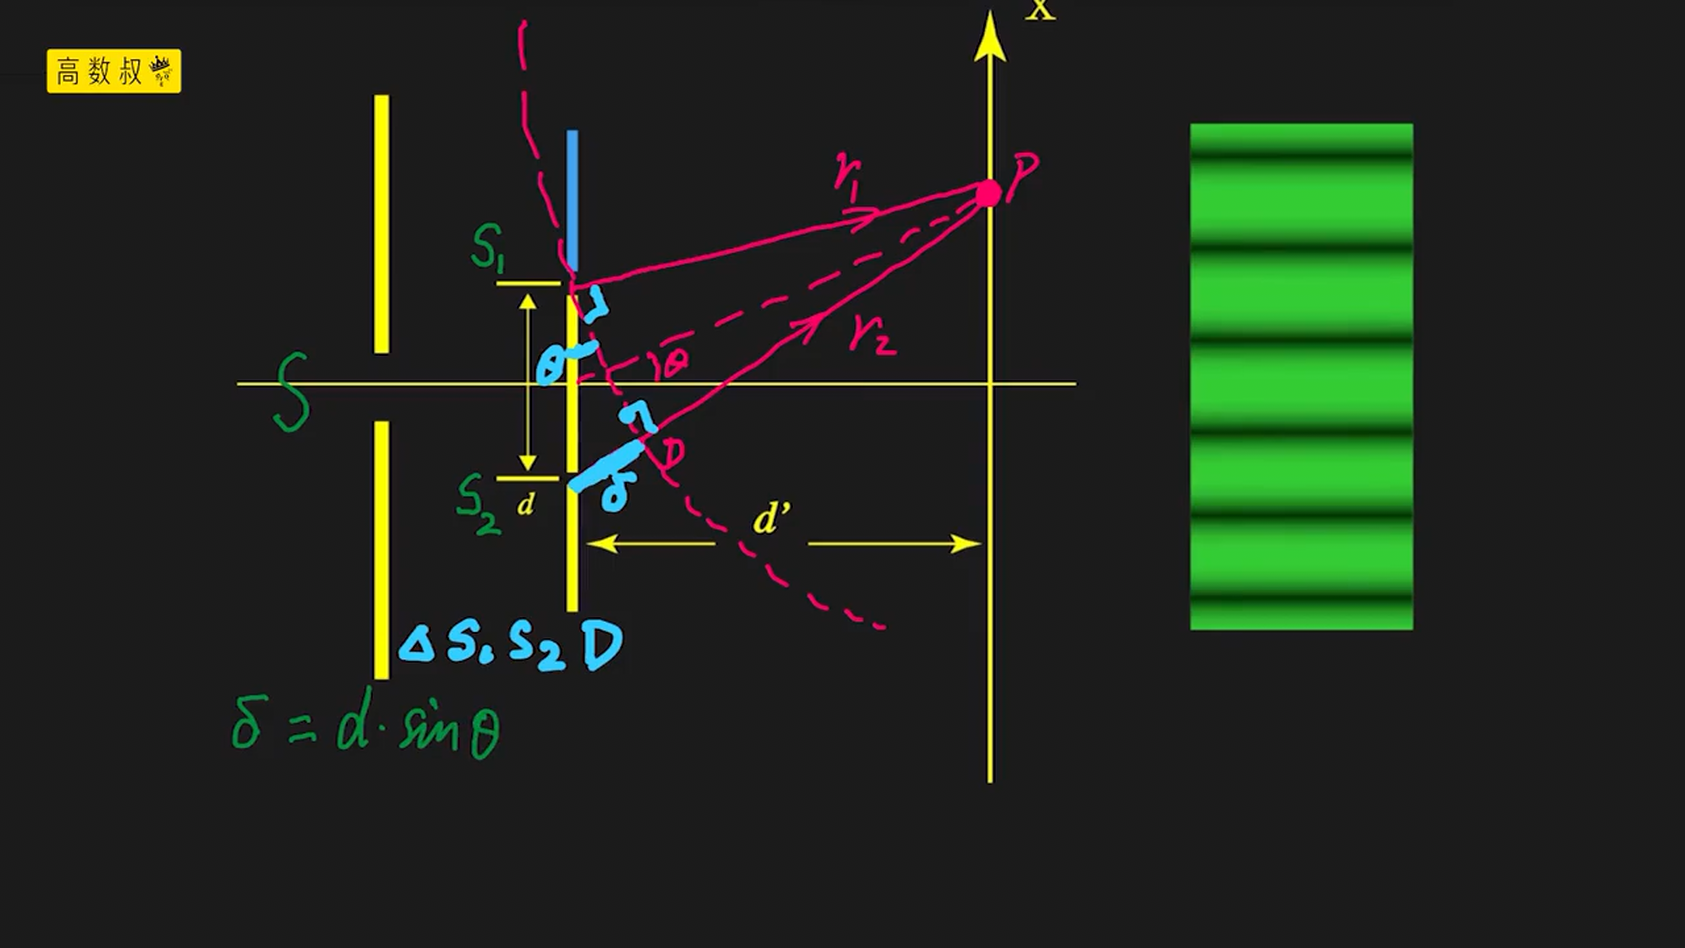 高数叔
X
P
r₁
S₁
r₂
θ
θ
S
D
S₂
d
δ
d'
Δ S₁ S₂ D
δ = d · sinθ